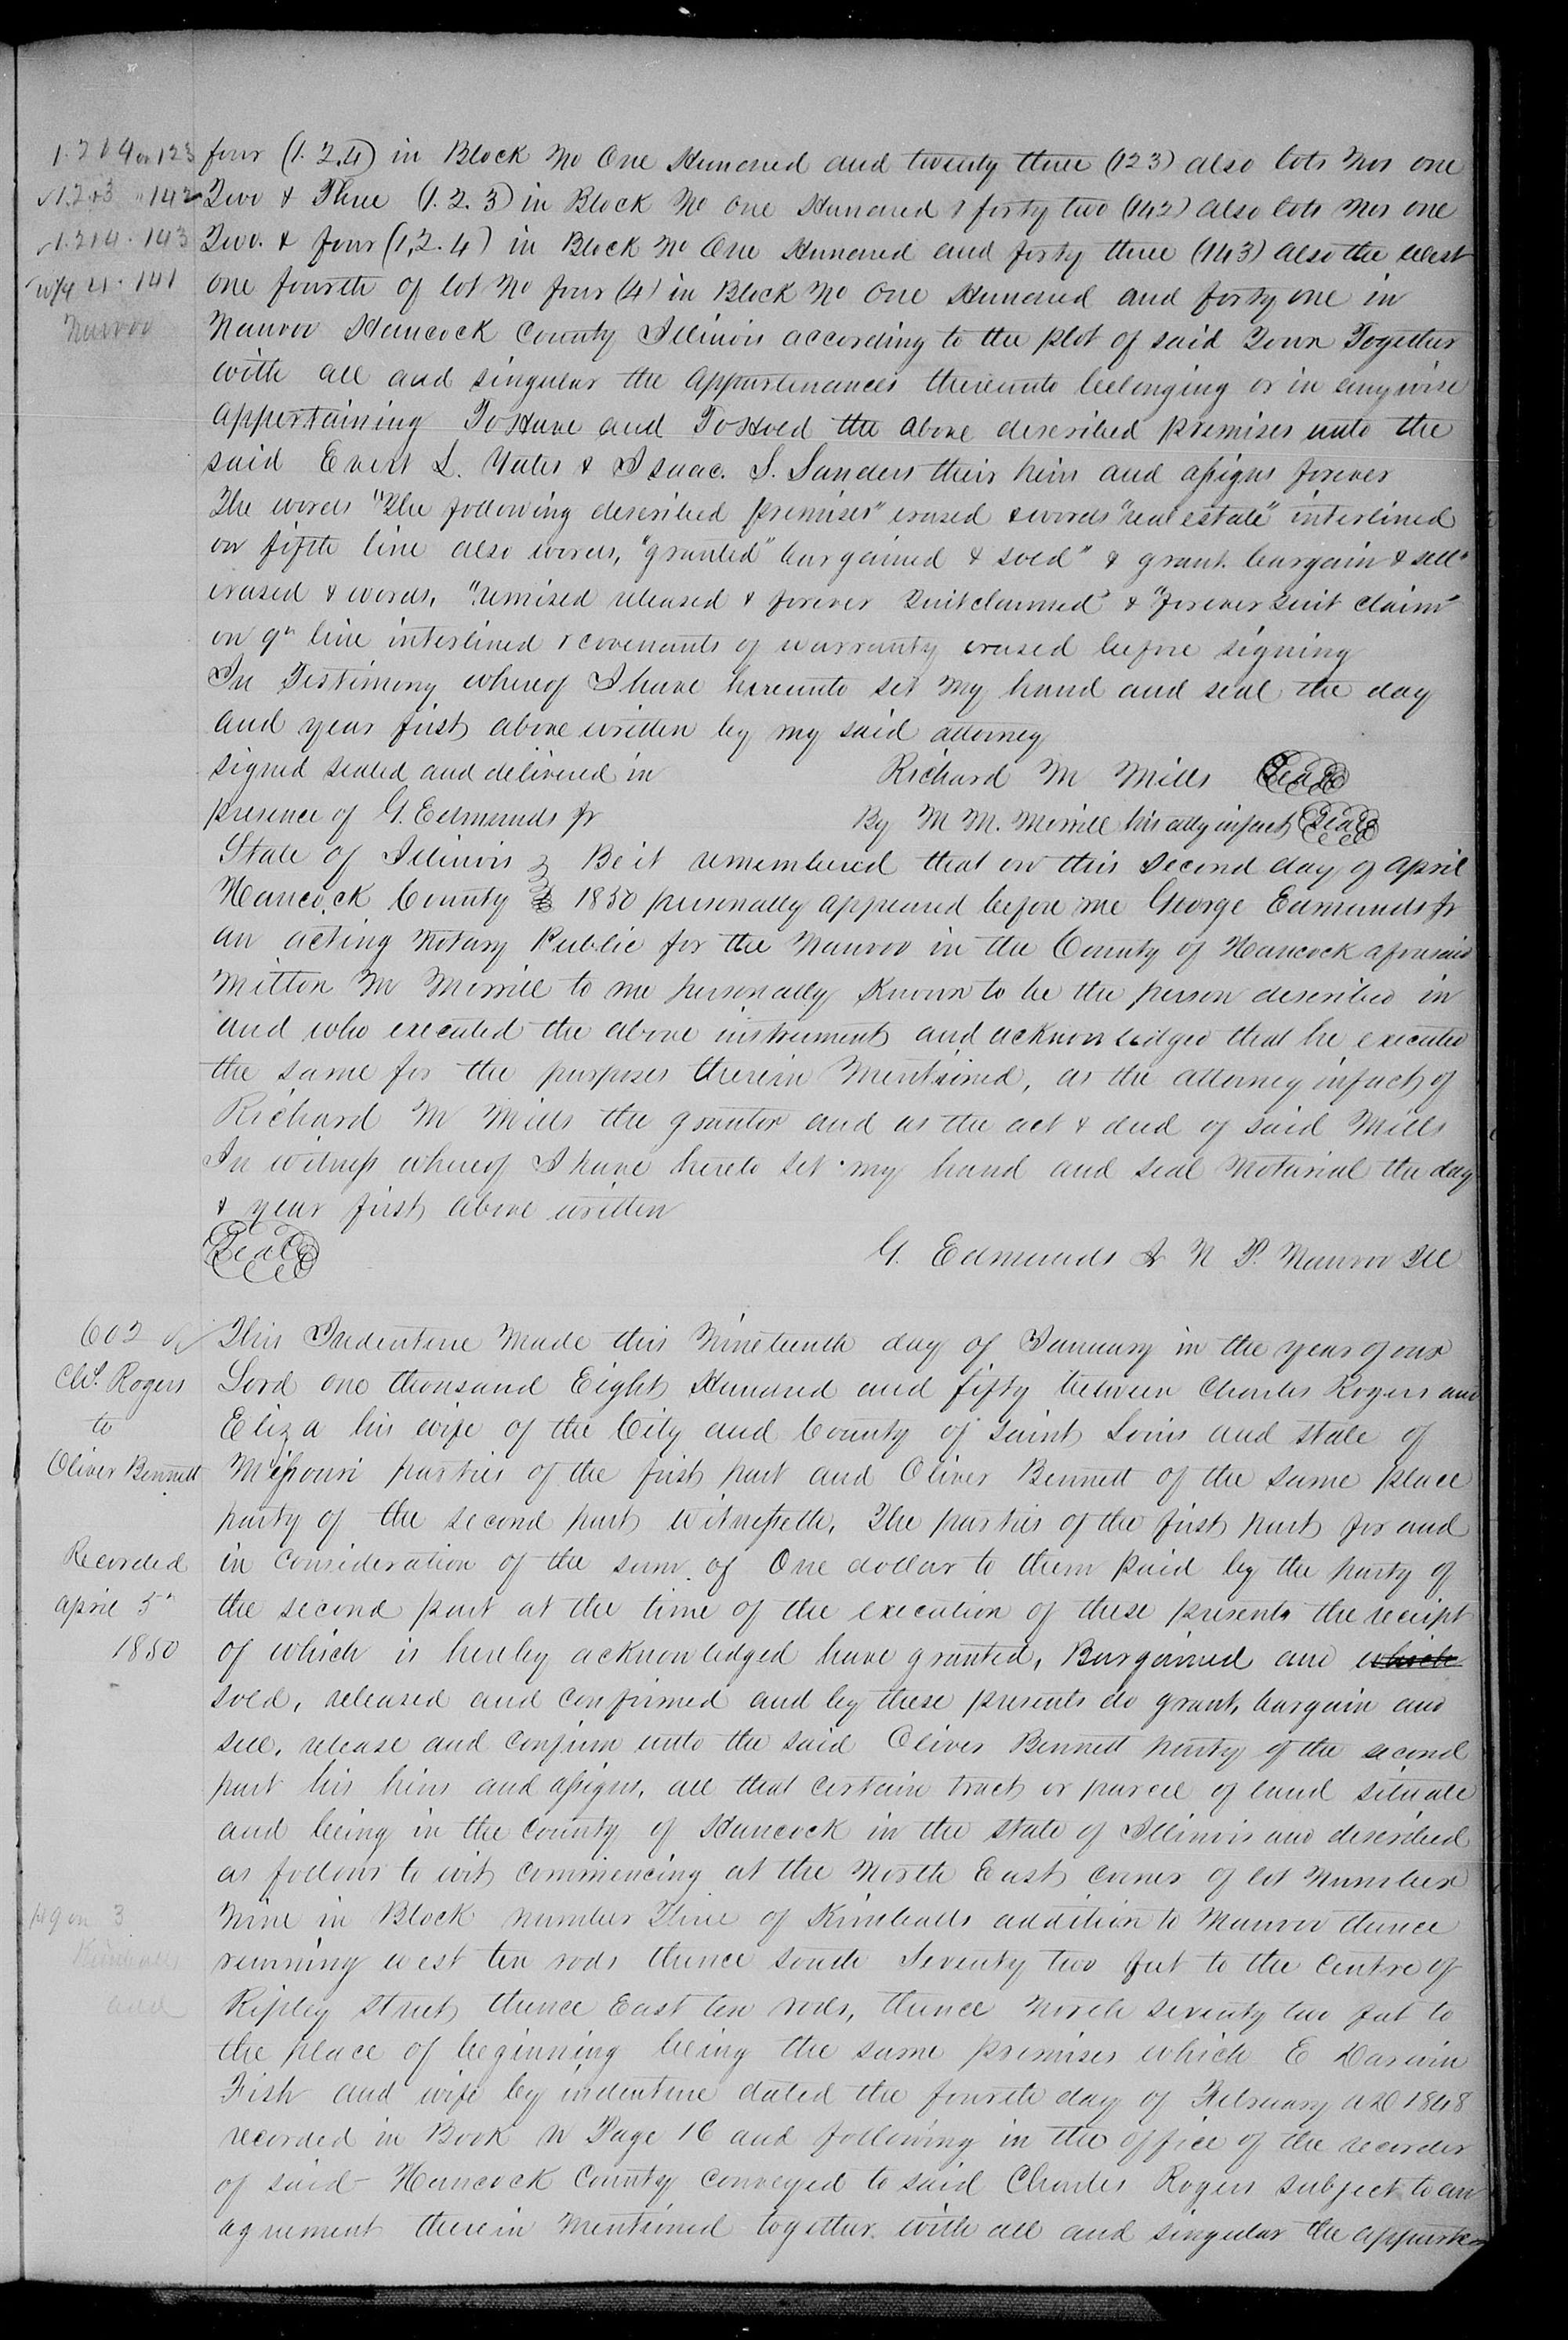 1. 2 & 4 on 123
1. 2 & 3 " 142
1. 2 & 4 . 143
w 1/4 4 . 141
Nauvoo
four (1. 2. 4) in Block No One Hundred and twenty three (123) also lots Nos one
Two & Three (1. 2. 3) in Block No One Hundred & forty two (142) also lots Nos one
Two. & four (1, 2. 4) in Block No One Hundred and forty three (143) also the West
one fourth of lot No four (4) in Block No One Hundred and forty one in
Nauvoo Hancock County Illinois according to the plot of said Town Together
with all and singular the appurtenances thereunto belonging or in anywise
appertaining To Have and To Hold the above described premises unto the
said Evert L. Yates & Isaac. S. Sanders their heirs and assigns forever
The words "The following described premises" erased & words "real estate" interlined
on fifth line also words, "granted" bargained & sold" & grant. bargain & sell"
erased & words, "remised released & forever Quitclaimed" & "forever Quit claim"
on 9th line interlined & covenants of warranty erased before signing
In Testimony whereof I have hereunto set my hand and seal the day
and year first above written by my said attorney
Signed sealed and delivered in Richard M Mills Seal
presence of G. Edmunds Jr By M M. Morrill his atty in fact Seal
State of Illinois Be it remembered that on this Second day of April
Hancock County 1850 personally appeared before me George Edmunds Jr
an acting Notary Public for the Nauvoo in the County of Hancock aforesaid
Milton M Morrill to me personally Known to be the person described in
and who executed the above instrument and acknowledged that he executed
the same for the purposes therein Mentioned, as the attorney in fact of
Richard M Mills the grantor and as the act & deed of said Mills
In witness whereof I have hereto set my hand and seal Notarial the day
& year first above written
Seal G. Edmunds Jr N P. Nauvoo Ill
602
Chs. Rogers
to
Oliver Bennett
Recorded
April 5th
1850
This Indenture Made this Nineteenth day of January in the year of our
Lord one thousand Eight Hundred and fifty between Charles Rogers and
Eliza his wife of the City and County of Saint Louis and State of
Missouri parties of the first part and Oliver Bennett of the same place
party of the second part Witnesseth, The parties of the first part for and
in consideration of the sum of One dollar to them paid by the party of
the second part at the time of the execution of these presents the receipt
of which is hereby acknowledged have granted, Bargained and which
sold, released and confirmed and by these presents do grant, bargain and
sell, release and confirm unto the said Oliver Bennett party of the second
part his heirs and assigns, all that certain tract or parcel of land situate
and being in the County of Hancock in the State of Illinois and described
as follows to wit commencing at the North East corner of lot Number
pt 9 on 3
Kimballs
add
Nine in Block number Three of Kimballs addition to Nauvoo thence
running west ten rods thence south Seventy two feet to the centre of
Ripley Street thence East ten rods, thence North seventy two feet to
the place of beginning being the same premises which E Darwin
Fish and wife by indenture dated the fourth day of February AD 1848
recorded in Book W Page 16 and following in the office of the recorder
of said Hancock County conveyed to said Charles Rogers subject to an
agreement therein Mentioned together with all and singular the appurten